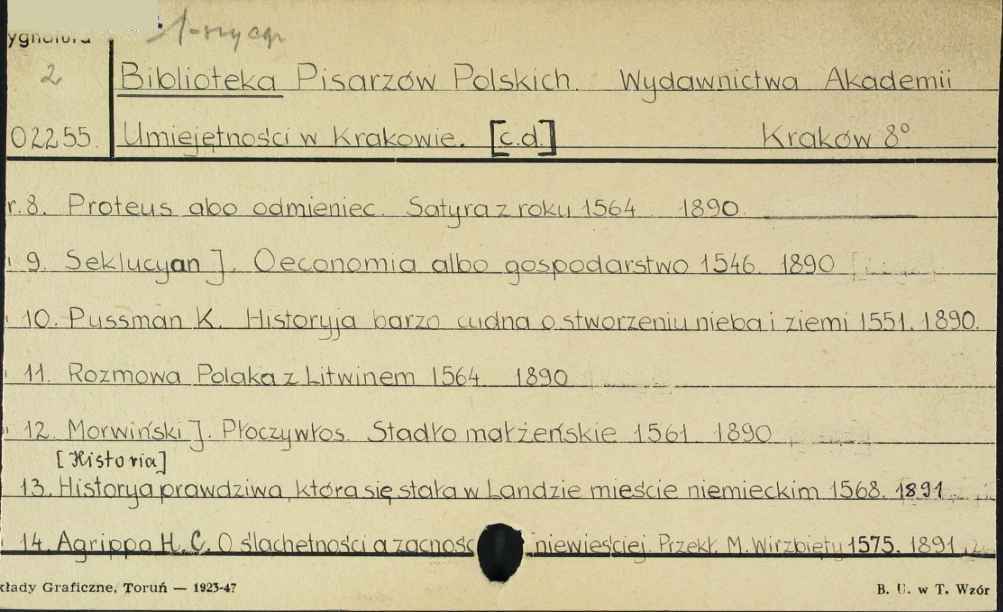 1-szy egz
ygnatura
2
Biblioteka Pisarzów Polskich. Wydawnictwa Akademii
02255. Umiejętności w Krakowie. [c.d.] Kraków 8°
r. 8. Proteus abo odmieniec. Satyra z roku 1564 1890
9. Seklucyan J. Oeconomia albo gospodarstwo 1546. 1890
10. Pussman K. Historyja barzo cudna o stworzeniu nieba i ziemi 1551. 1890.
11. Rozmowa Polaka z Litwinem 1564 1890
12. Morwiński J. Płoczywłos. Stadło małżeńskie 1561 1890
[Historia]
13. Historya prawdziwa, która się stała w Landzie mieście niemieckim 1568. 1891
14. Agrippa H. C. O ślachetności a zacnośc niewieściej Przekł. M. Wirzbięty 1575. 1891
kłady Graficzne, Toruń — 1923-47
B. U. w T. Wzór